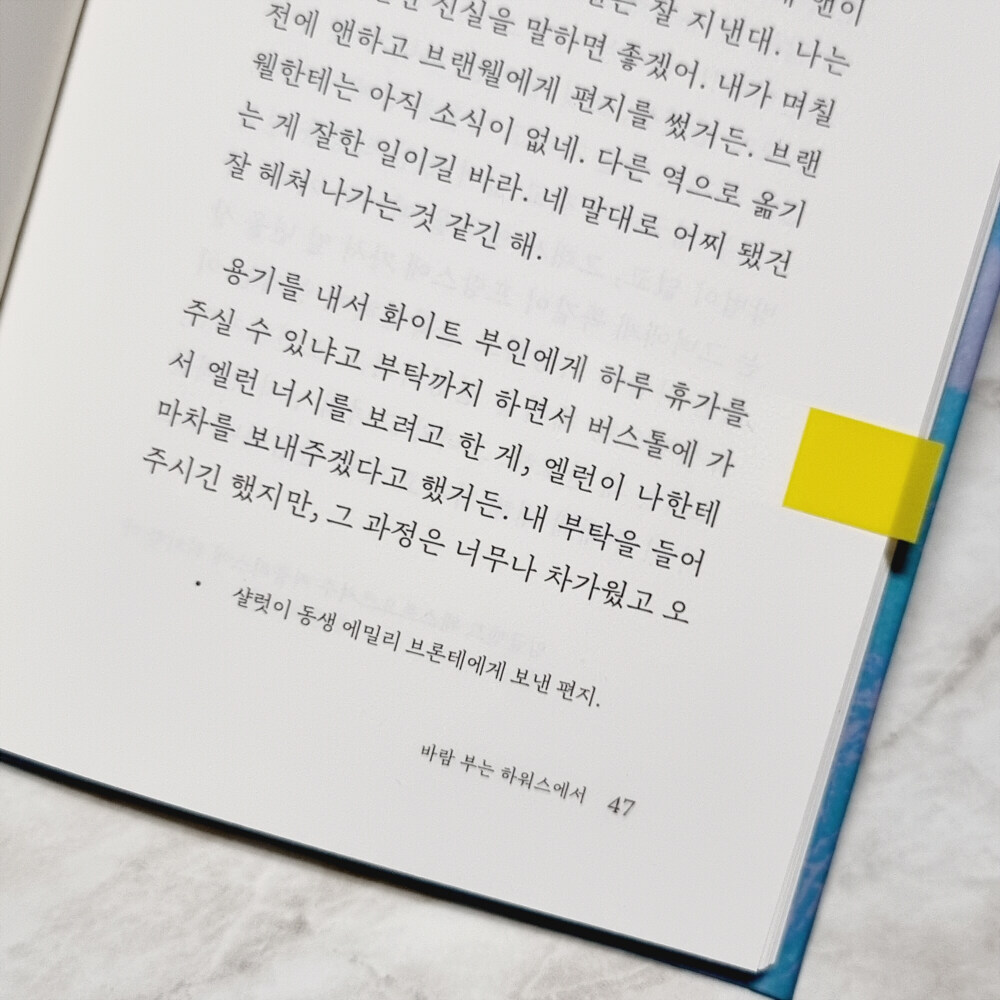 앤이
잘 지낸대. 나는
진실을 말하면 좋겠어. 내가 며칠
전에 앤하고 브랜웰에게 편지를 썼거든. 브랜
웰한테는 아직 소식이 없네. 다른 역으로 옮기
는 게 잘한 일이길 바라. 네 말대로 어찌 됐건
잘 헤쳐 나가는 것 같긴 해.
용기를 내서 화이트 부인에게 하루 휴가를
주실 수 있냐고 부탁까지 하면서 버스톨에 가
서 엘런 너시를 보려고 한 게, 엘런이 나한테
마차를 보내주겠다고 했거든. 내 부탁을 들어
주시긴 했지만, 그 과정은 너무나 차가웠고 오
• 샬럿이 동생 에밀리 브론테에게 보낸 편지.
바람 부는 하워스에서 47